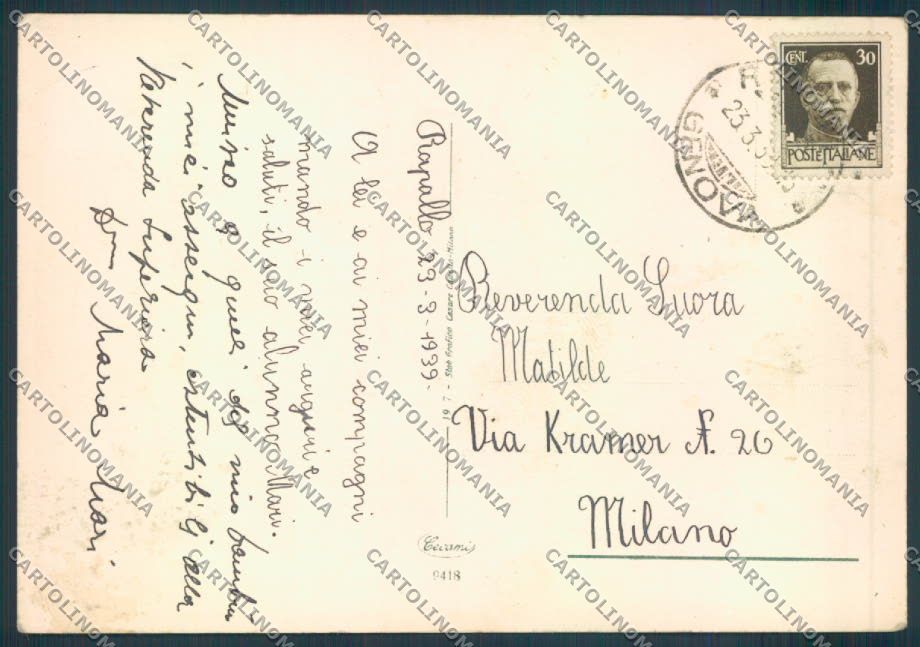 Rapallo 23-3-1939.
A lei e ai miei compagni
mando i miei auguri e
saluti, il suo alunno Mari.
Unisco a quei del mio bambino
i miei ossequi, estensibili alla
Reverenda Superiora
Maria Mari.
CENT. 30
POSTE ITALIANE
23.3.
Reverenda Suora
Matilde
Via Kramer N. 26
Milano
19 7 - Stab. Grafico Cesare - Milano
Cecami
9418
CARTOLINOMANIA